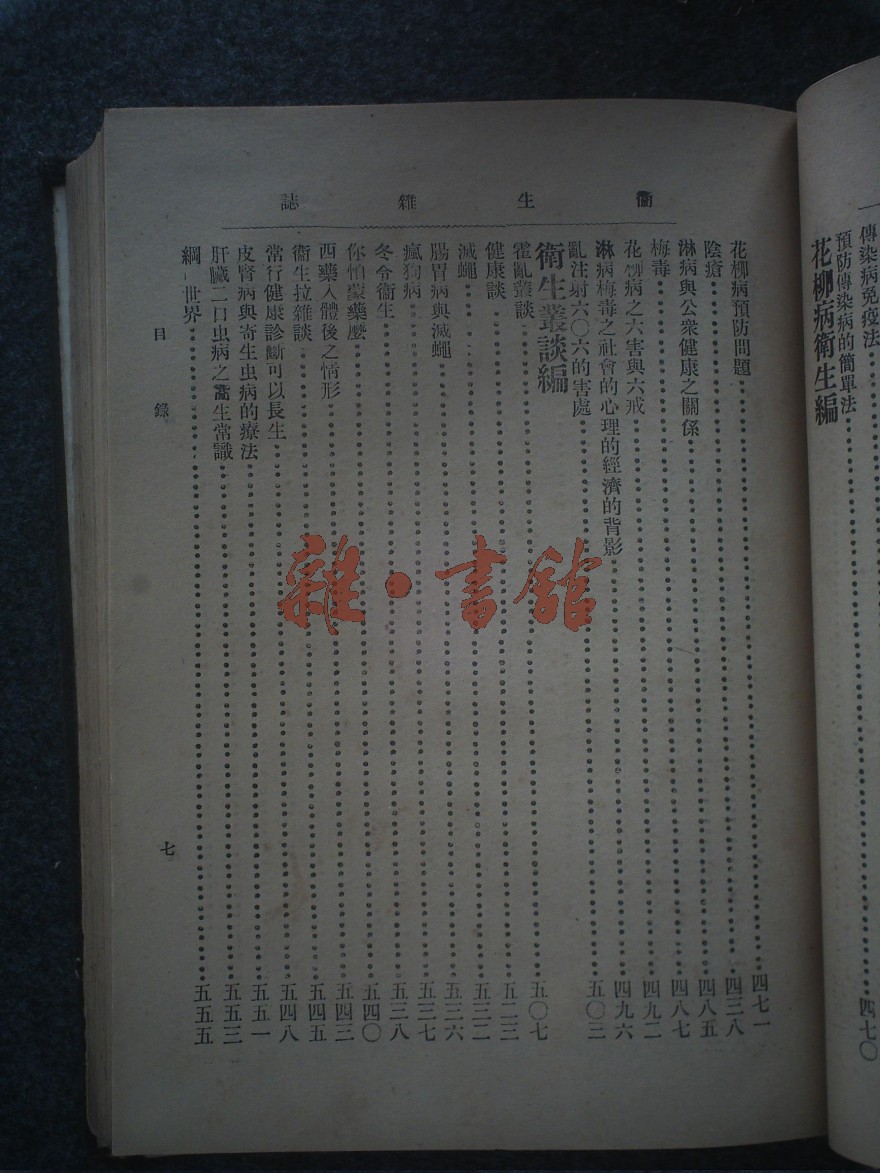 傳染病免疫法
預防傳染病的簡單法……四七〇
花柳病衛生編
衞生雜誌
花柳病預防問題……四七一
陰瘡……四三八
淋病與公衆健康之關係……四八五
梅毒……四八七
花柳病之六害與六戒……四九二
淋病梅毒之社會的心理的經濟的背影……四九六
亂注射六〇六的害處……五〇三
衛生叢談編
霍亂叢談……五〇七
健康談……五二三
滅蠅……五三二
腸胃病與滅蠅……五三六
瘋狗病……五三七
冬令衞生……五三八
你怕蒙藥麼……五四〇
西藥入體後之情形……五四三
衞生拉雜談……五四五
常行健康診斷可以長生……五四八
皮腎病與寄生虫病的療法……五五一
肝臟二口虫病之衞生常識……五五三
綱-世界……五五五
目錄
七
雜·書館